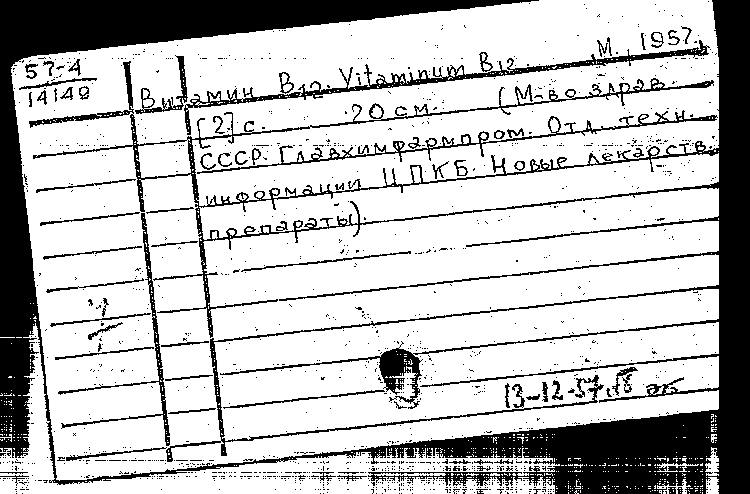 57-4
14149
Витамин В12. Vitaminum B12. М., 1957.
[2] с. 20 см. (М-во здрав.
СССР. Главхимфармпром. Отд. техн.
информации ЦПКБ. Новые лекарств.
препараты).
13-12-57.